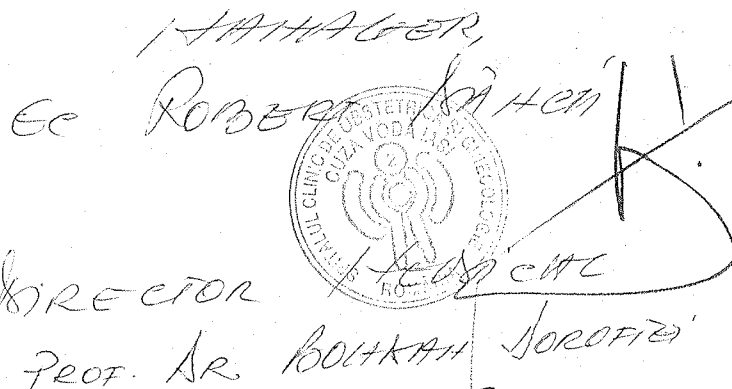 MANAGER,
Ec ROBERT DĂNCĂ
SPITALUL CLINIC DE OBSTETRICĂ ȘI GINECOLOGIE
CUZA VODĂ IAȘI
ROMÂNIA
DIRECTOR MEDICAL
PROF. DR BOGDAN DOROFTEI